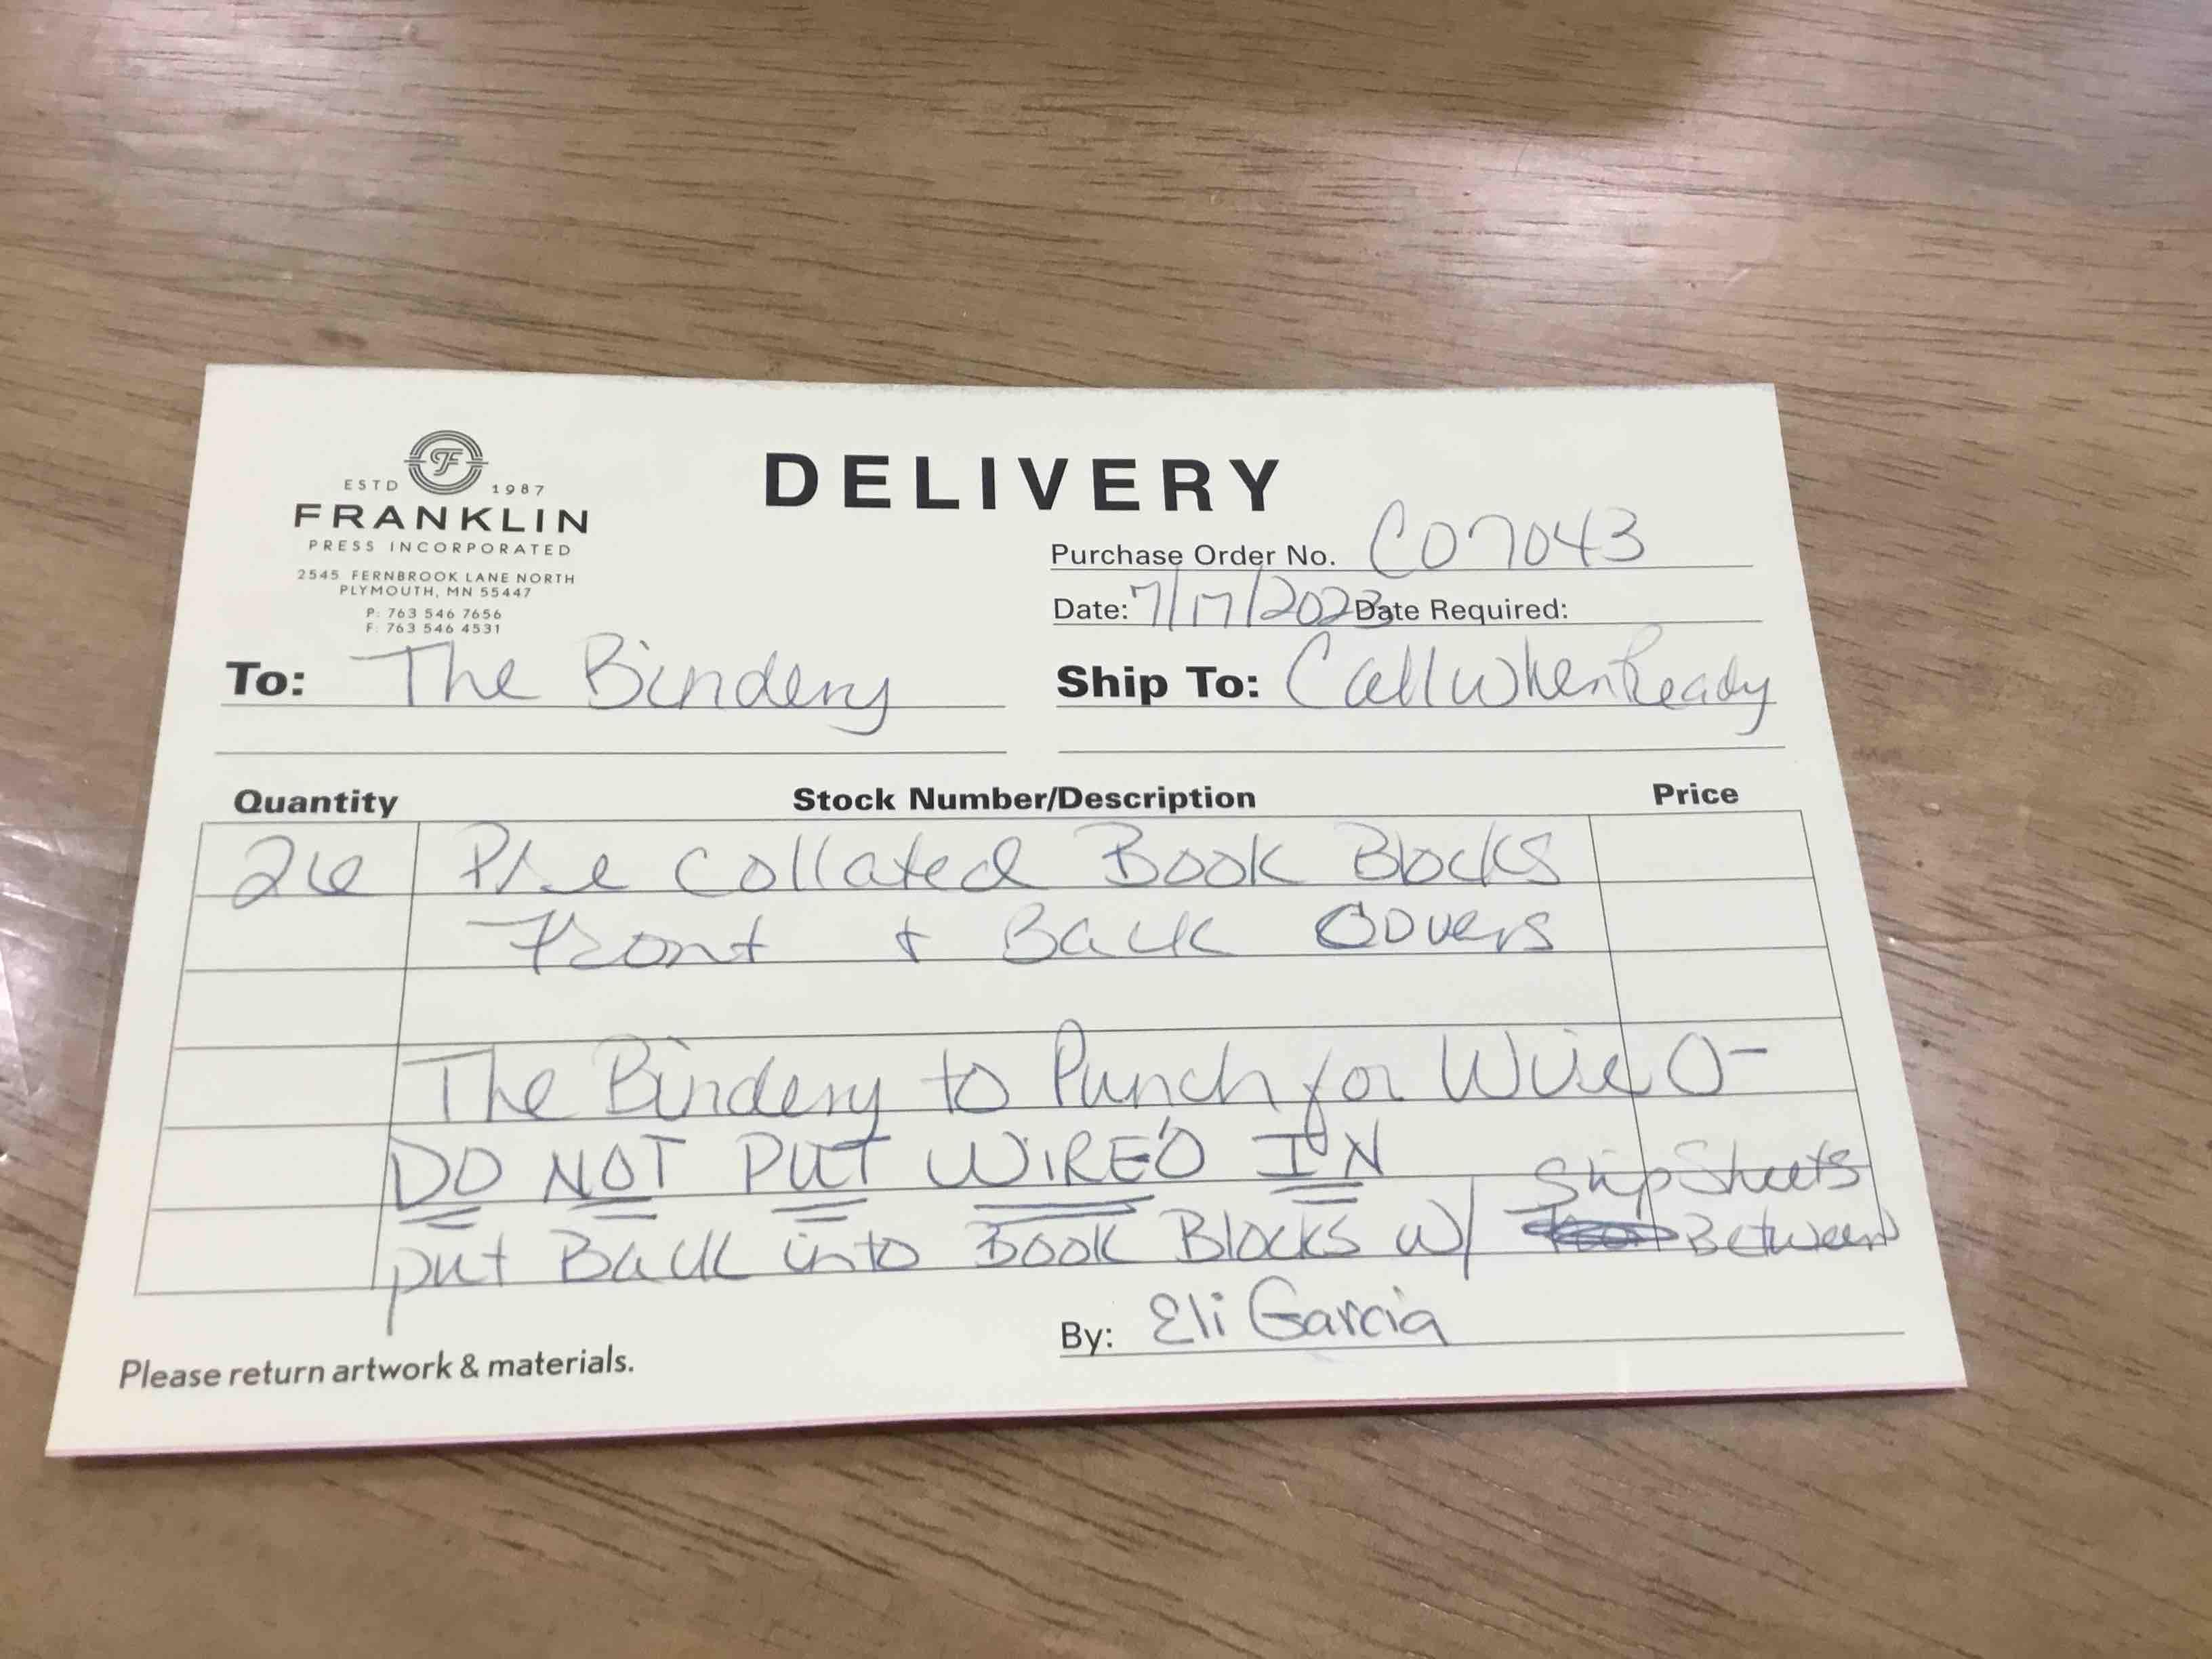 ESTD 1987
FRANKLIN
PRESS INCORPORATED
2545 FERNBROOK LANE NORTH
PLYMOUTH, MN 55447
P: 763 546 7656
F: 763 546 4531
DELIVERY
Purchase Order No. C07043
Date: 7/17/2023 Date Required:
To: The Bindery
Ship To: Call When Ready
Quantity Stock Number/Description Price
26 Pre Collated Book Blocks
Front + Back Covers
The Bindery to Punch for Wire O-
DO NOT PUT WIRE'O IN
put Back into Book Blocks w/ Slip Sheets
Between
By: Eli Garcia
Please return artwork & materials.